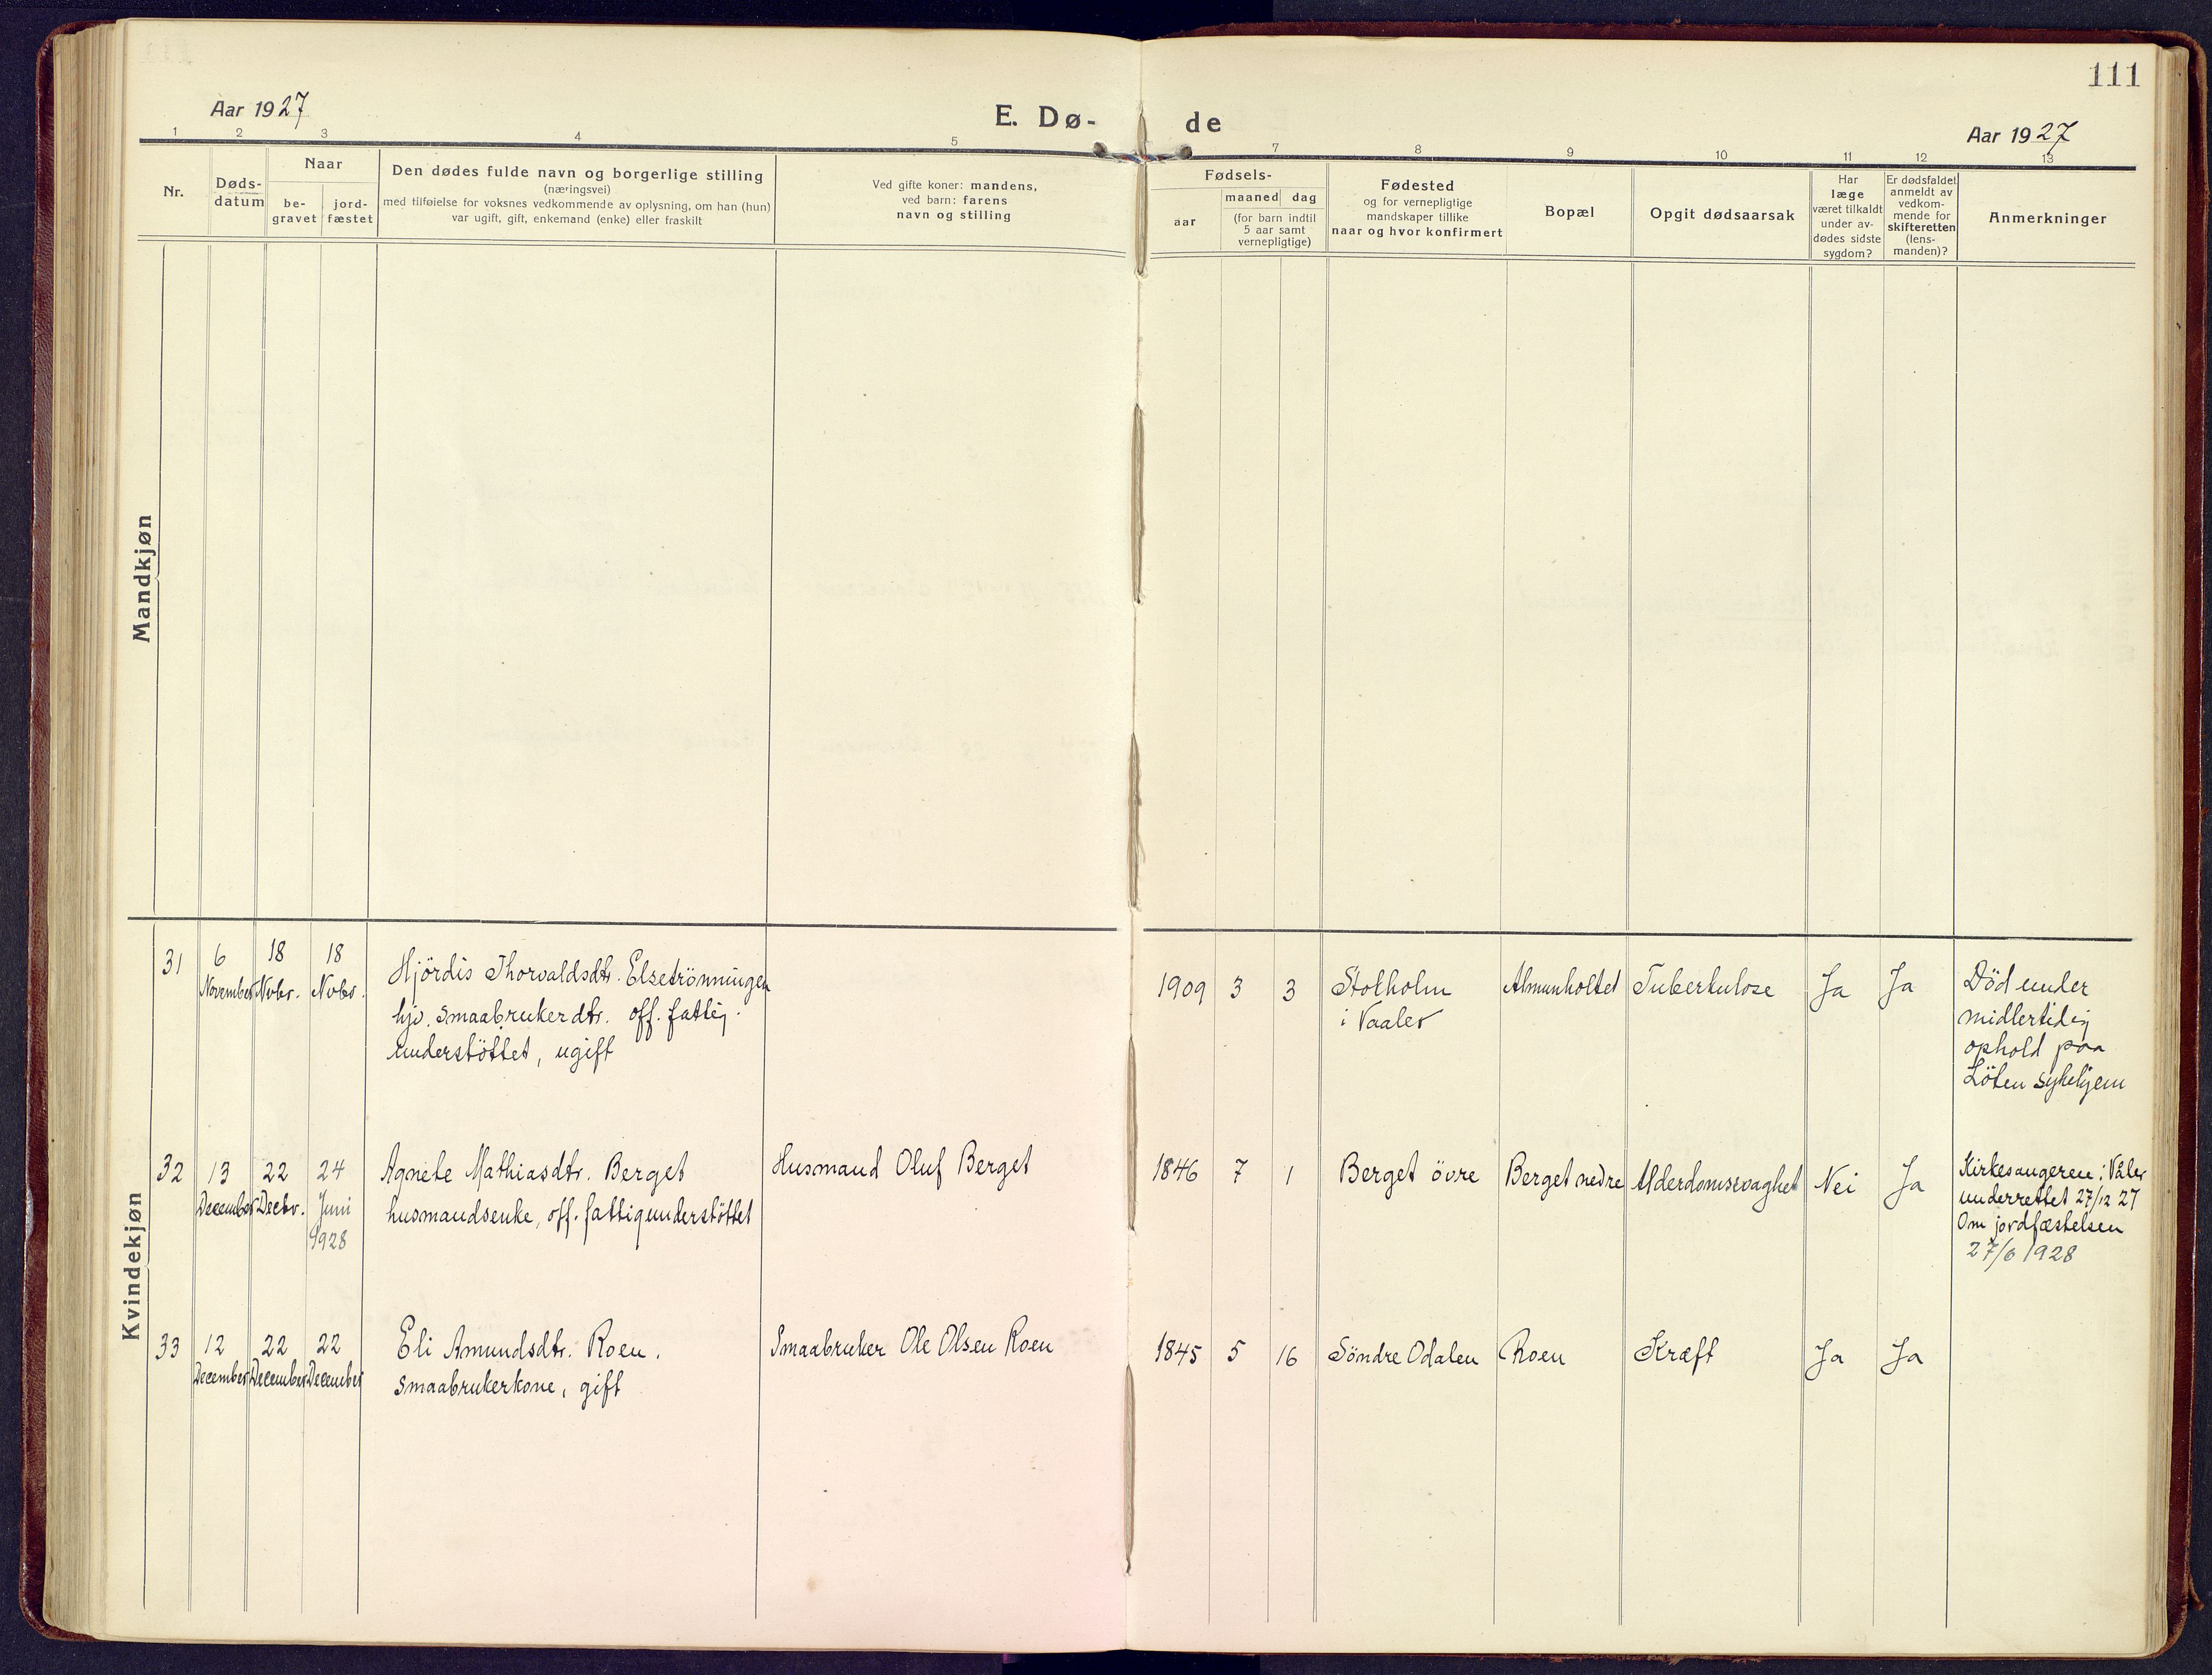 111
Aar 1927
E. Dø-
de
Aar 1927
1 2 3 4 5 7 8 9 10 11 12 13
Nr.
Døds-
datum
Naar
be-
gravet
jord-
fæstet
Den dødes fulde navn og borgerlige stilling
(næringsvei)
med tilføielse for voksnes vedkommende av oplysning, om han (hun)
var ugift, gift, enkemand (enke) eller fraskilt
Ved gifte koner: mandens,
ved barn: farens
navn og stilling
Fødsels-
aar
maaned dag
(for barn indtil
5 aar samt
vernepligtige)
Fødested
og for vernepligtige
mandskaper tillike
naar og hvor konfirmert
Bopæl
Opgit dødsaarsak
Har
læge
været tilkaldt
under av-
dødes sidste
sygdom?
Er dødsfaldet
anmeldt av
vedkom-
mende for
skifteretten
(lens-
manden)?
Anmerkninger
Mandkjøn
Kvindekjøn
31
6
November
18
Nvbr.
18
Nvbr.
Hjördis Thorvaldsdtr. Elsetrönningen
hjv. smaabrukerdtr. off. fattig-
understöttet, ugift
1909 3 3
Stolholm
i Vaaler
Almunholtet
Tuberkulose
Ja
Ja
Död under
midlertidig
ophold paa
Löten sykehjem
32
13
December
22
Decbr.
24
Juni
1928
Agnete Mathiasdtr. Berget
husmandsenke, off. fattigunderstöttet
Husmand Oluf Berget
1846 7 1
Berget övre
Berget nedre
Alderdomssvaghet
Nei
Ja
Kirkesangeren i Våler
underrettet 27/12 27
Om jordfæstelsen
27/6 1928
33
12
December
22
December
22
December
Eli Amundsdtr. Roen.
smaabrukerkone, gift
Smaabruker Ole Olsen Roen
1845 5 16
Söndre Odalen
Roen
Kræft
Ja
Ja